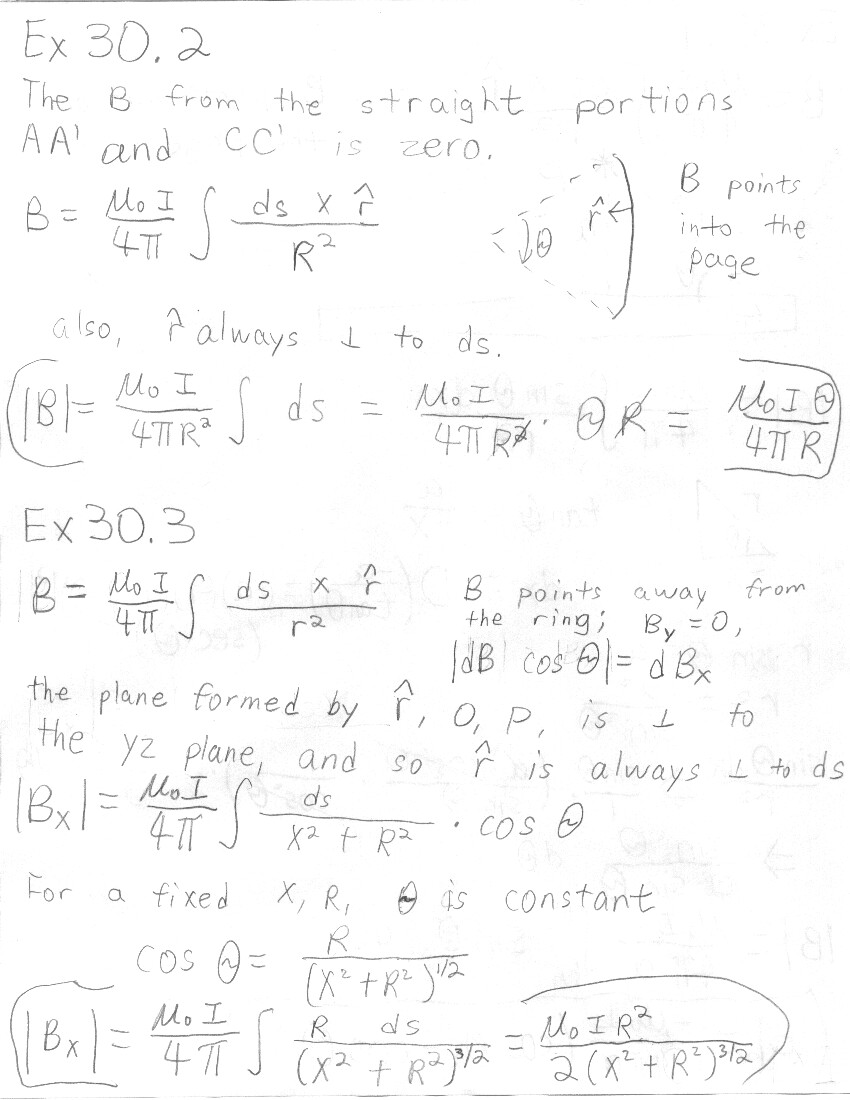 Ex 30.2
The B from the straight portions
AA' and CC' is zero.
B = μ₀ I / 4π ∫ ds × r̂ / R²
θ r̂ ←
B points
into the
page
also, r̂ always ⊥ to ds.
|B| = μ₀ I / 4πR² ∫ ds = μ₀ I / 4πR² · θ R = μ₀ I θ / 4πR
Ex 30.3
B = μ₀ I / 4π ∫ ds × r̂ / r²
B points away from
the ring; By = 0,
|dB cos θ| = dBx
the plane formed by r̂, O, P, is ⊥ to
the yz plane, and so r̂ is always ⊥ to ds
|Bx| = μ₀ I / 4π ∫ ds / x² + R² · cos θ
For a fixed x, R, θ is constant
cos θ = R / (x² + R²)^1/2
|Bx| = μ₀ I / 4π ∫ R ds / (x² + R²)^3/2 = μ₀ I R² / 2(x² + R²)^3/2